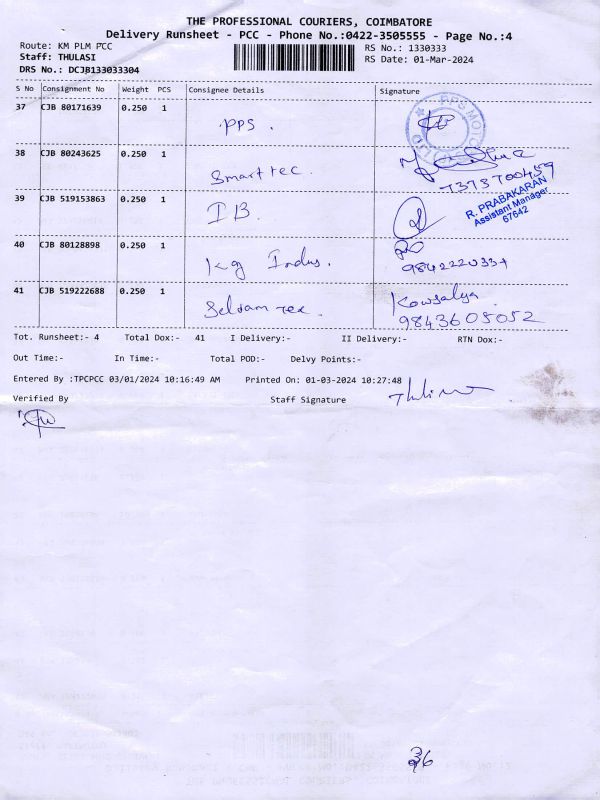 THE PROFESSIONAL COURIERS, COIMBATORE
Delivery Runsheet - PCC - Phone No.:0422-3505555 - Page No.:4
Route: KM PLM PCC RS No.: 1330333
Staff: THULASI RS Date: 01-Mar-2024
DRS No.: DCJB133033304
S No Consignment No Weight PCS Consignee Details Signature
37 CJB 80171639 0.250 1 PPS.
PPS MOTO
38 CJB 80243625 0.250 1 Smart tec.
7373700459
39 CJB 519153863 0.250 1 IB.
R. PRABAKARAN
Assistant Manager
67642
40 CJB 80128898 0.250 1 Kg Indus.
9842220337
41 CJB 519222688 0.250 1 Selvam Tex. Kowsalya
9843605052
Tot. Runsheet:- 4 Total Dox:- 41 I Delivery:- II Delivery:- RTN Dox:-
Out Time:- In Time:- Total POD:- Delvy Points:-
Entered By :TPCPCC 03/01/2024 10:16:49 AM Printed On: 01-03-2024 10:27:48
Verified By Staff Signature
36